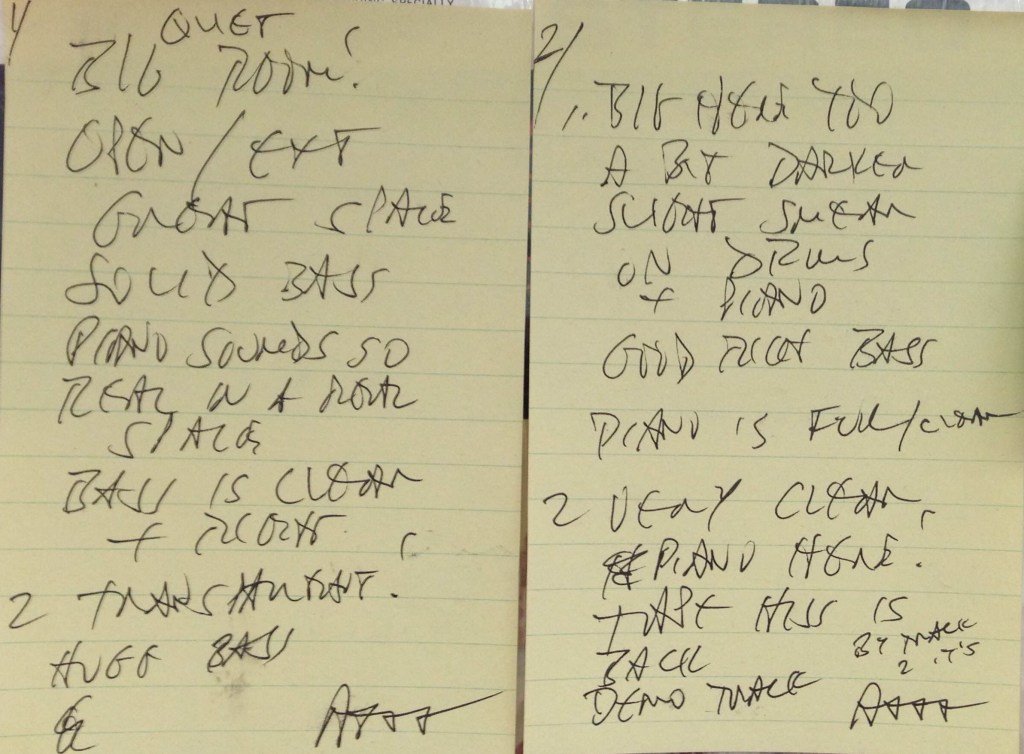 1/
QUIET
BIG ROOM!
OPEN / EXT
GREAT SPACE
SOLID BASS
PIANO SOUNDS SO
REAL IN A REAL
SPACE
BASS IS CLEAR
+ RIGHT
2 TRANSPARENT!
HUGE BASS
A+++
2/
1. BIG HERE TOO
A BIT DARKER
SLIGHT SMEAR
ON DRUMS
+ PIANO
GOOD RIGHT BASS
PIANO IS FULL/CLEAR
2 VERY CLEAR,
PIANO HERE!
TAPE HISS IS
BACK BY TRACK
2 IT'S
DEMO TRACK A+++